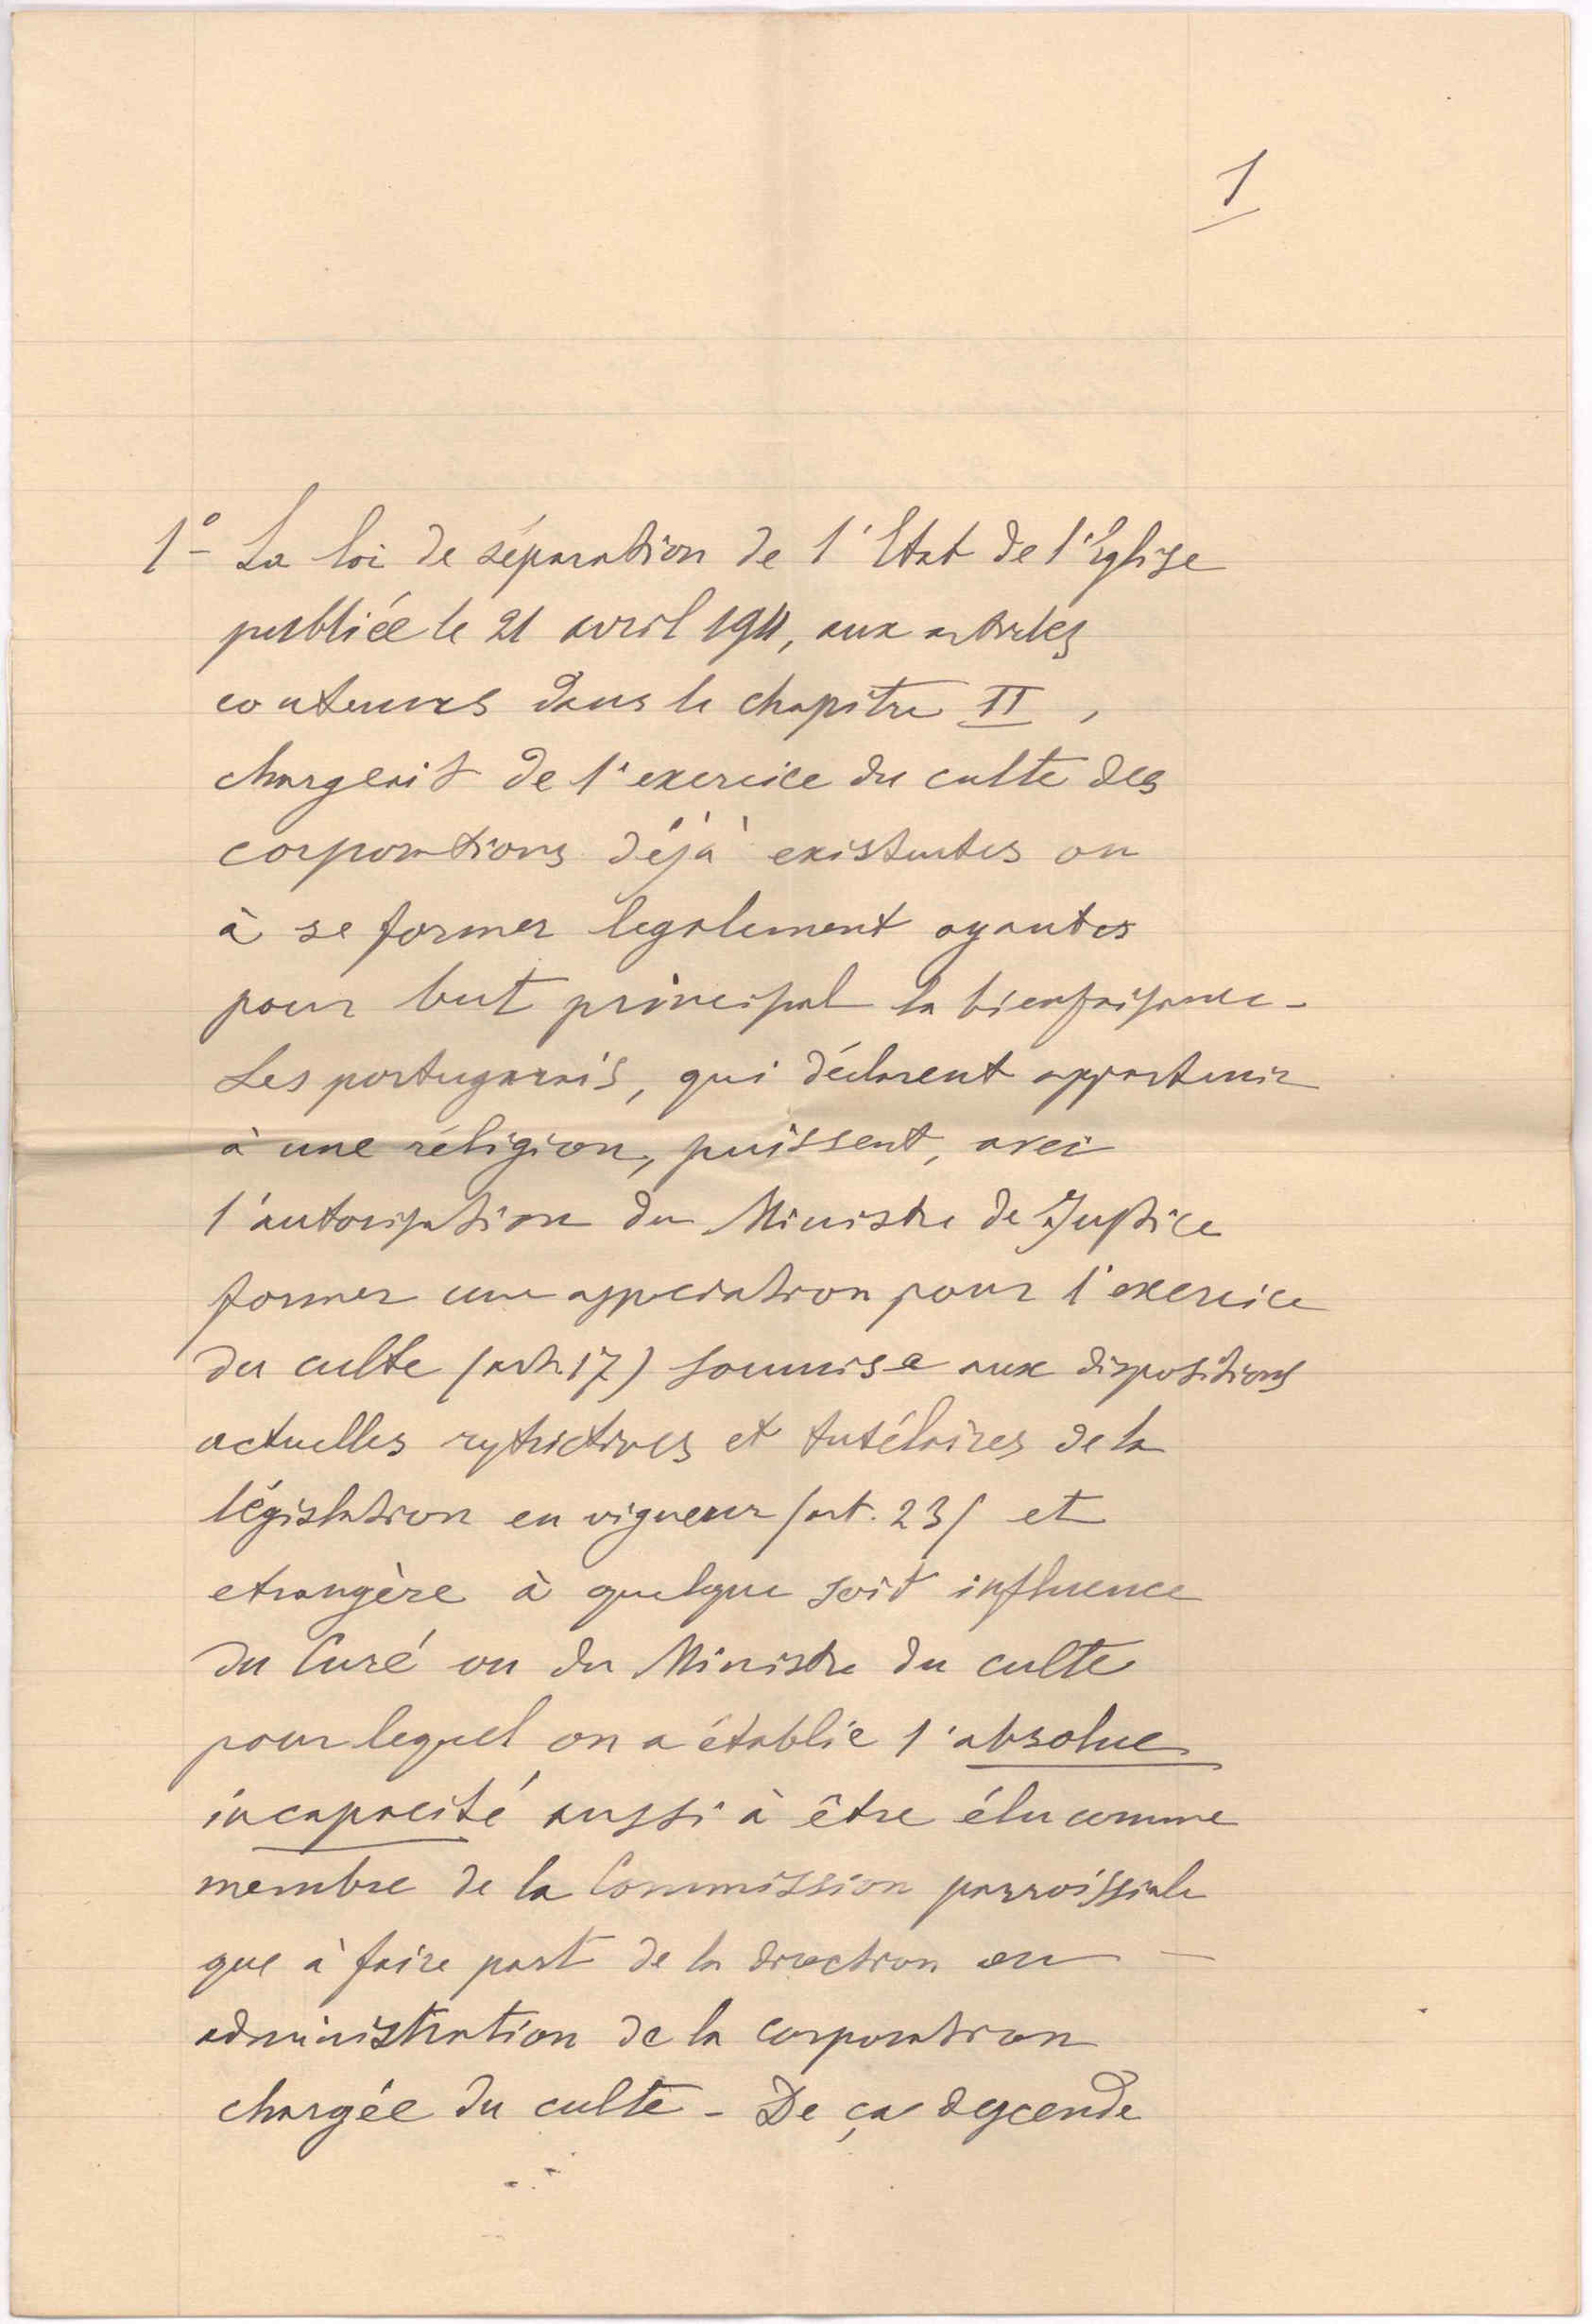 1
1º - La loi de séparation de l'Etat de l'Eglise
publiée le 21 avril 1911, aux articles
contenues dans le chapître II,
chargeait de l'exercice du culte des
corporations déjà existentes ou
à se former legalement ayantes
pour but principal la bienfaisance -
Les portugarais, qui déclarent appartenir
à une réligion, puissent, avec
l'autorisation du Ministre de Justice
former une association pour l'exercice
du culte (art. 17) soumise aux dispositions
actuelles restrictives et tutélaires de la
législation en vigueur (art. 23) et
etrangère à quelque soit influence
du Curé ou du Ministre du culte
pour lequel on a établie l'absolue
incapacité aussi à être élu comme
membre de la Commission parroissiale
que à faire part de la direction ou -
administration de la corporation
chargée du culte - De ça descende